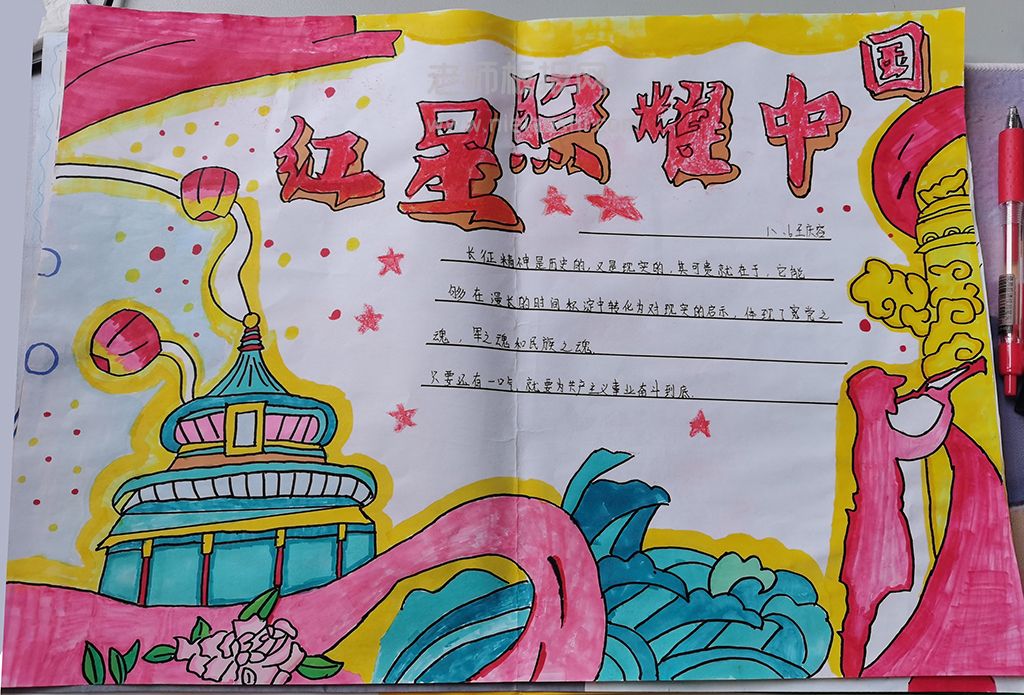 红星照耀中国
长征精神是历史的，又是现实的，其可贵就在于，它能
够在漫长的时间松淀中转化为对现实的启示，体现了党之
魂，军之魂和民族之魂
只要还有一口气，就要为共产主义事业奋斗到底.